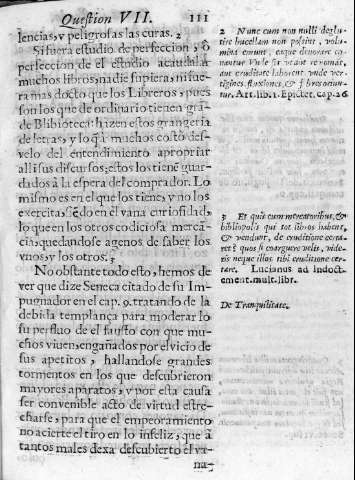 Question VII.
111
lencias, y peligrosas las curas. 2
Si fuera estudio de perfeccion, ò
perfeccion de el estudio acaudalar
muchos libros, nadie supiera, ni fue-
ra mas docto que los Libreros, pues
son los que de ordinario tienen gran-
de Bliblioteca: hazen estos grangeria
de letras, y lo q̃ à muchos costò des-
velo del entendimiento apropriar
alli sus discursos; estos los tienẽ guar-
dados à la espera del comprador. Lo
mismo es en el que los tiene, y no los
exercita, siẽdo en èl vana curiosidad,
lo que en los otros codiciosa mercã-
cia, quedandose agenos de saber los
vnos, y los otros. 3
No obstante todo esto, hemos de
ver que dize Seneca citado de su Im-
pugnador en el cap. 9. tratando de la
debida templança para moderar lo
superfluo de el fausto con que mu-
chos viuen, engañados por el vicio de
sus apetitos, hallandose grandes
tormentos en los que descubrieron
mayores aparatos, y por esta causa
ser convenible acto de virtud estre-
charse, para que el empeoramiento
no acierte el tiro en lo infeliz, que à
tantos males dexa descubierto el va-
na-
2 Nunc cum non nulli deglu-
tire bucellam non possint, volu-
mina emunt, eaque devorare co-
nantur. Vnde fit vt aut revomãt,
aut cruditate laborent vnde ver-
tigines, fluxiones, & febres oriun-
tur. Art. lib. 1. Epictet. cap. 26.
3 Et quis cum mercatoribus, &
bibliopolis qui tot libros habent,
& vendunt, de eruditione certa-
ret? quos si coarguere velis, vide-
ris neque illos tibi eruditione cer-
tare. Lucianus ad Indoct-
ement. mult. libr.
De Tranquilitate.